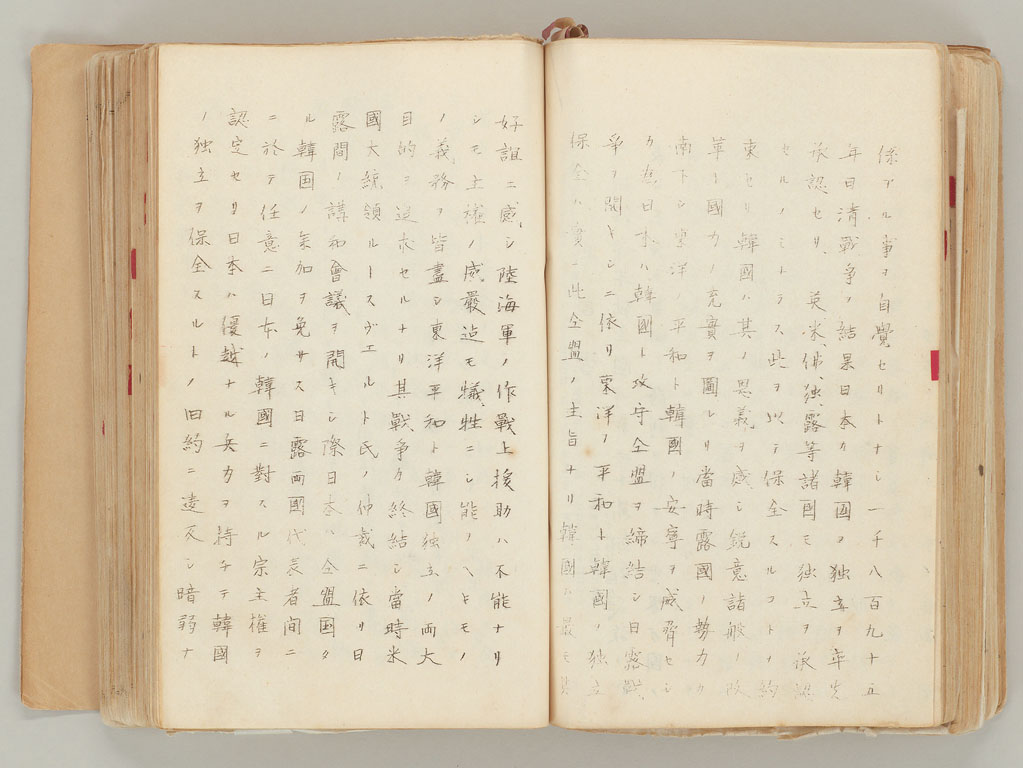 保アル事ヲ自覺セリトナシ一千八百九十五
年日清戰争ノ結果日本カ韓国ヲ独立ヲ率先
承認セリ、英、米、佛、独、露等諸国モ独立ヲ承認
セルノミトテス此ヲ以テ保全スルコトノ約
東セリ韓國ハ其ノ恩義ヲ感シ鋭意諸般ノ改
革ト國力ノ充實ヲ圖レリ當時露國ノ勢力カ
南下シ東洋ノ平和ト韓國ノ安寧ヲ威脅セシ
カ為日本ハ韓國ト攻守仝盟ヲ締結シ日露戰
爭ヲ開キシニ依リ東洋ノ平和ト韓國ノ独立
保全ハ實ニ此仝盟ノ主旨ナリ韓國ハ最モ
好誼ニ感シ陸海軍ノ作戰上援助ハ不能ナリ
シモ主權ノ威嚴迠モ犠牲ニシ能ノヘキモノ
ノ義務ヲ皆盡シ東洋平和ト韓國独立ノ両大
目的ヲ追求セルナリ其戰爭カ終結シ當時米
國大統領ルースヴエルト氏ノ仲裁ニ依リ日
露間ノ講和會議ヲ開キシ際日本ハ仝盟国タ
ル韓国ノ参加ヲ免サス日露両國代表者間ニ
ニ於テ任意ニ日本ノ韓國ニ對スル宗主權ヲ
認定セリ日本ハ優越ナル兵力ヲ持チテ韓國
ノ独立ヲ保全スルトノ旧約ニ違反シ暗弱ナ